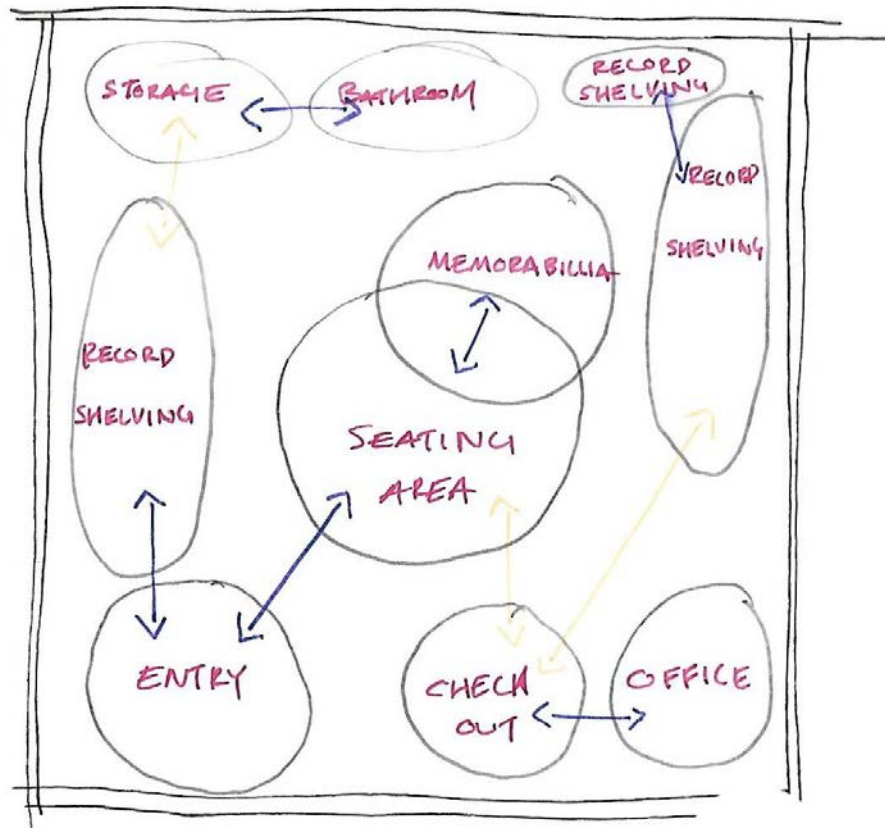 STORAGE
BATHROOM
RECORD
SHELVING
RECORD
SHELVING
MEMORABILLIA
RECORD
SHELVING
SEATING
AREA
ENTRY
CHECK
OUT
OFFICE